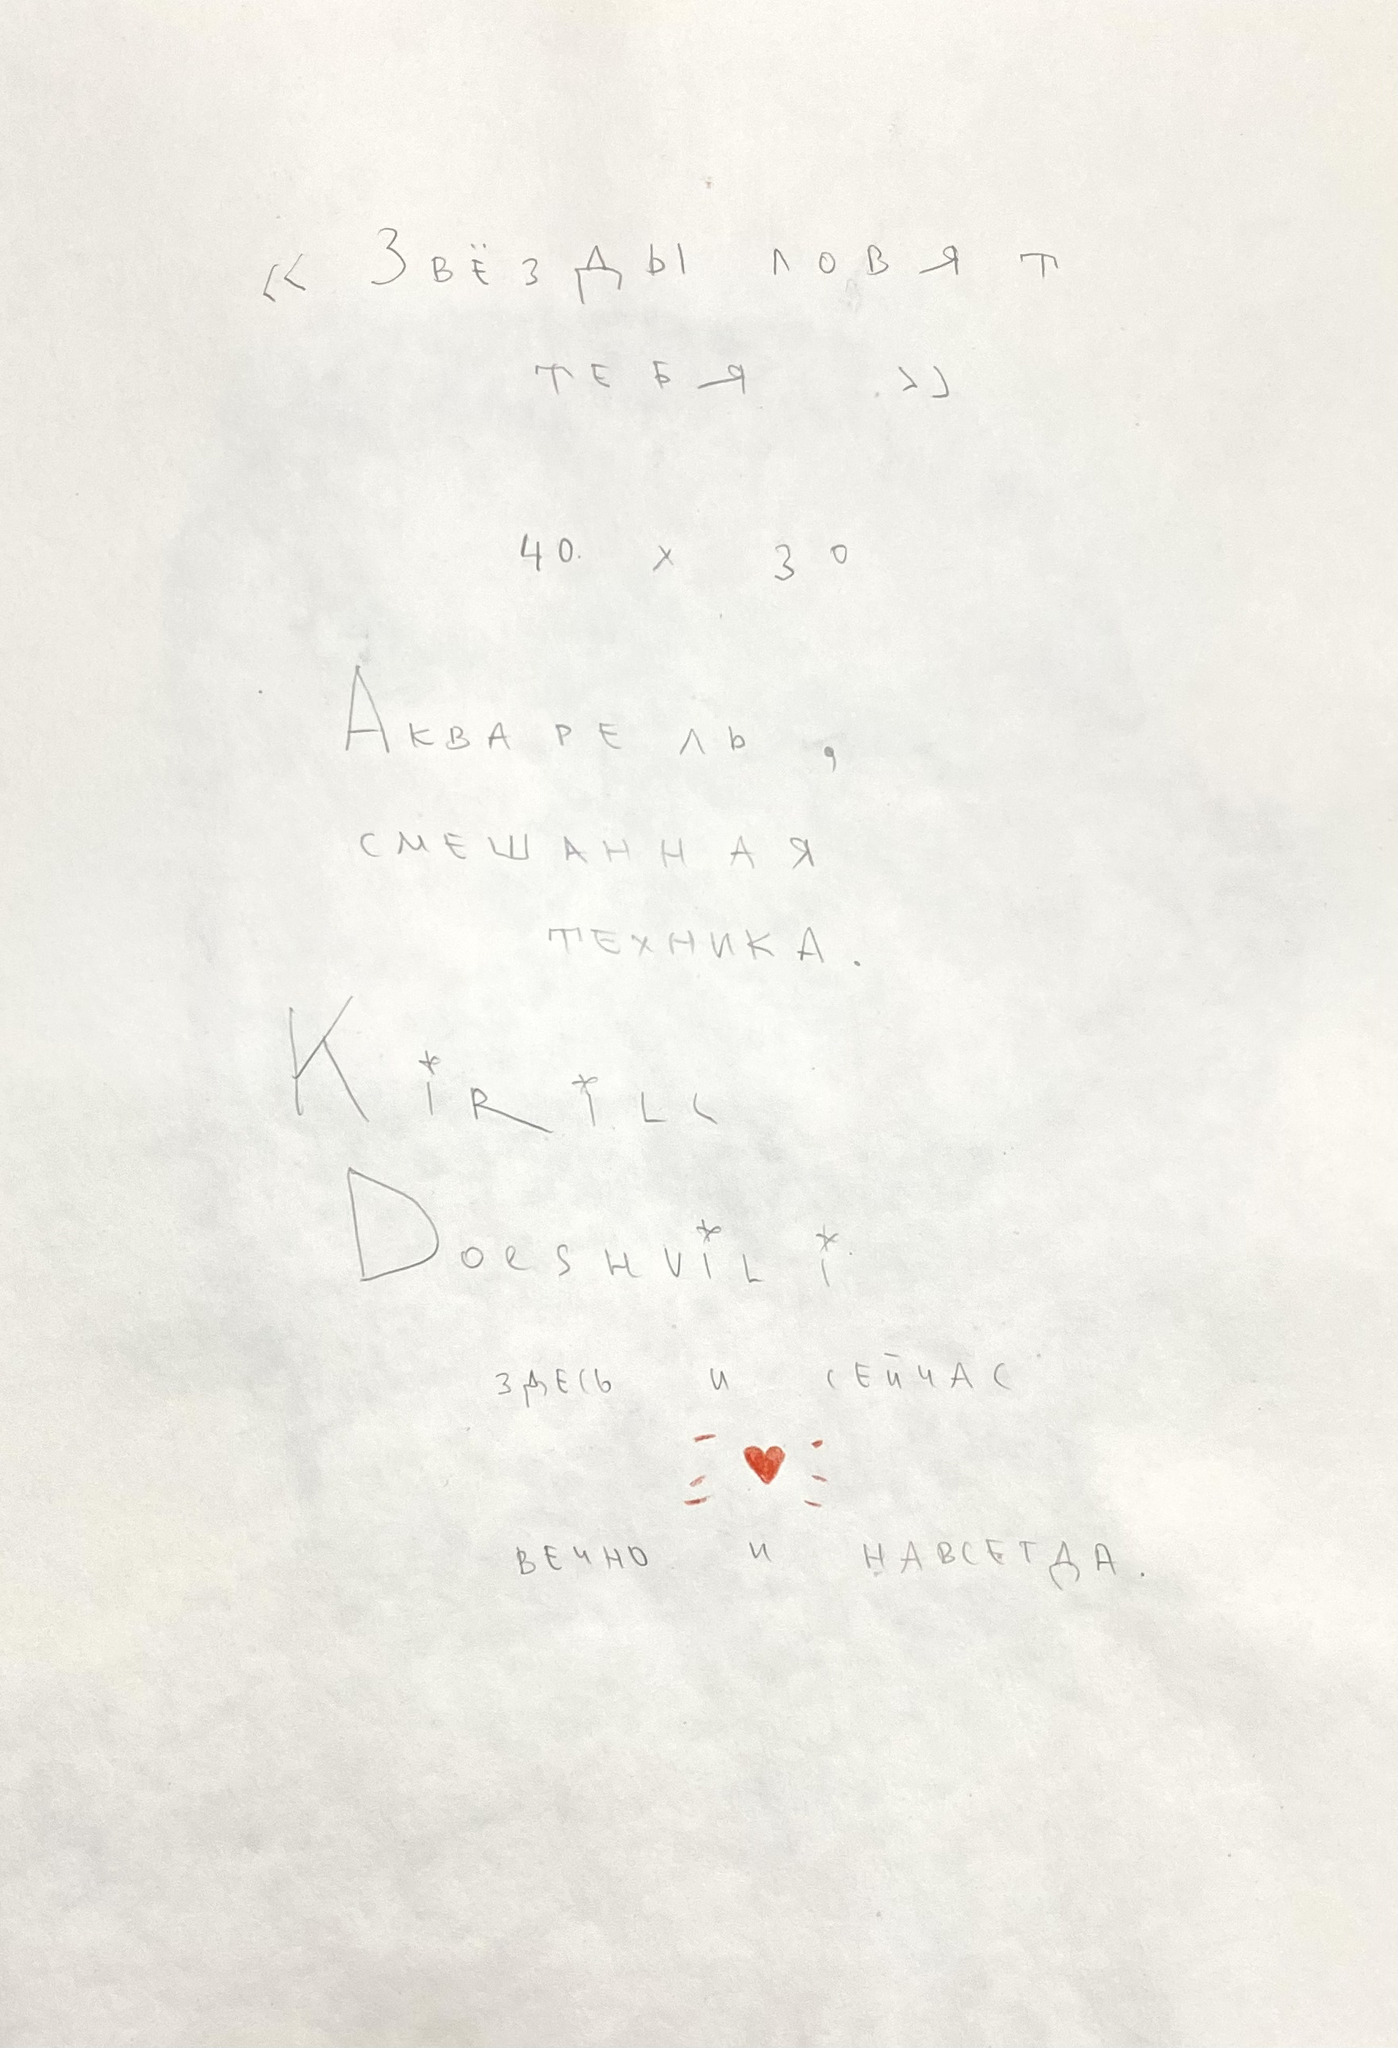 «Звёзды ловят
тебя.»
40. x 30
Акварель,
смешанная
техника.
Kirill
Doeshvili
здесь и сейчас
вечно и навсегда.